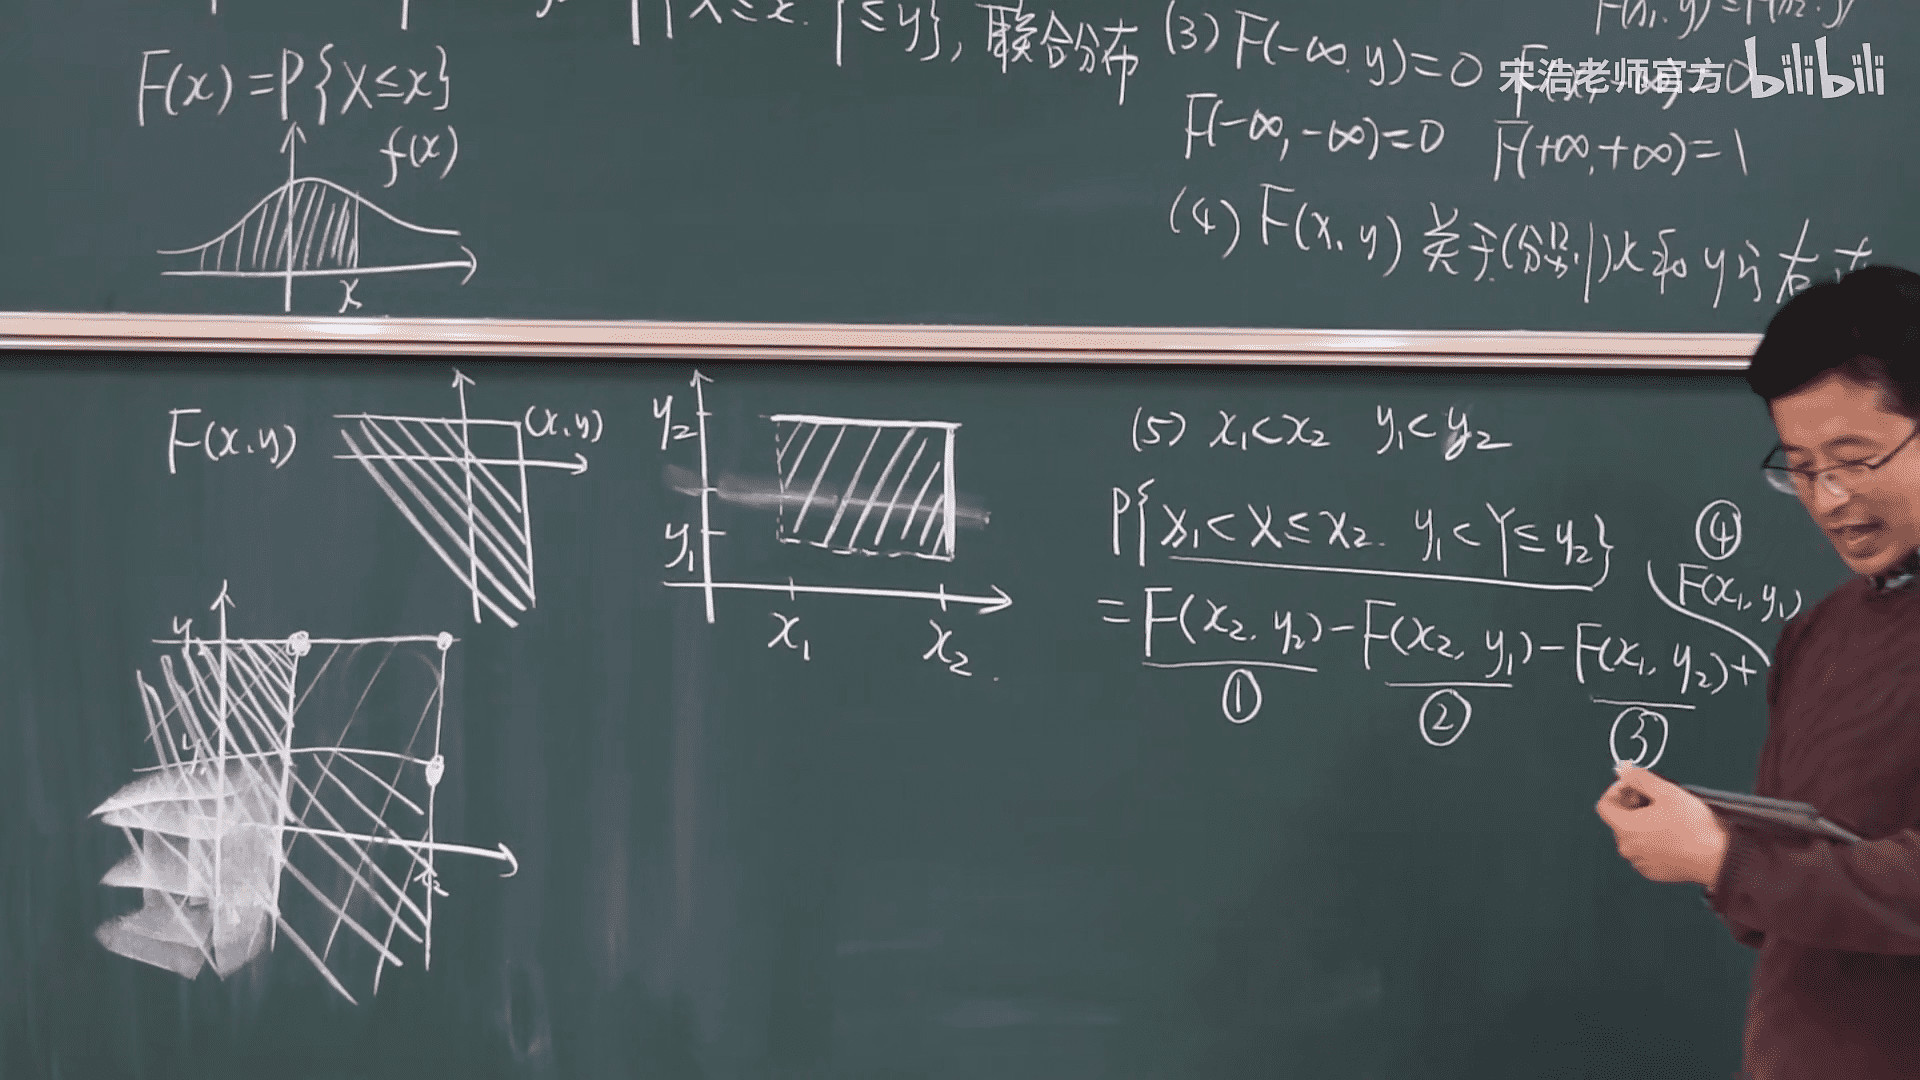 ≤y}, 联合分布
F(x)=P{X≤x}
f(x)
x
(3) F(-∞, y)=0
宋浩老师官方 bilibili
F(-∞, -∞)=0 F(+∞, +∞)=1
(4) F(x, y) 关于(分别)x和y
F(x,y)
(x,y)
y₂
y₁
x₁
x₂
y₂
y₁
x₂
(5) x₁<x₂ y₁<y₂
P{x₁<X≤x₂. y₁<Y≤y₂}
=F(x₂, y₂)-F(x₂, y₁)-F(x₁, y₂)+
F(x₁, y₁)
① ② ③ ④